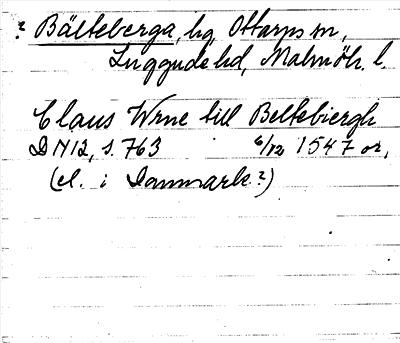 ? Bälteberga, hg, Ottarps sn,
Luggude hd, Malmöh. l.
Claus Wrne till Beltebiergh
DN12, s. 763 6/12 1547 or,
(el. i Danmark?)